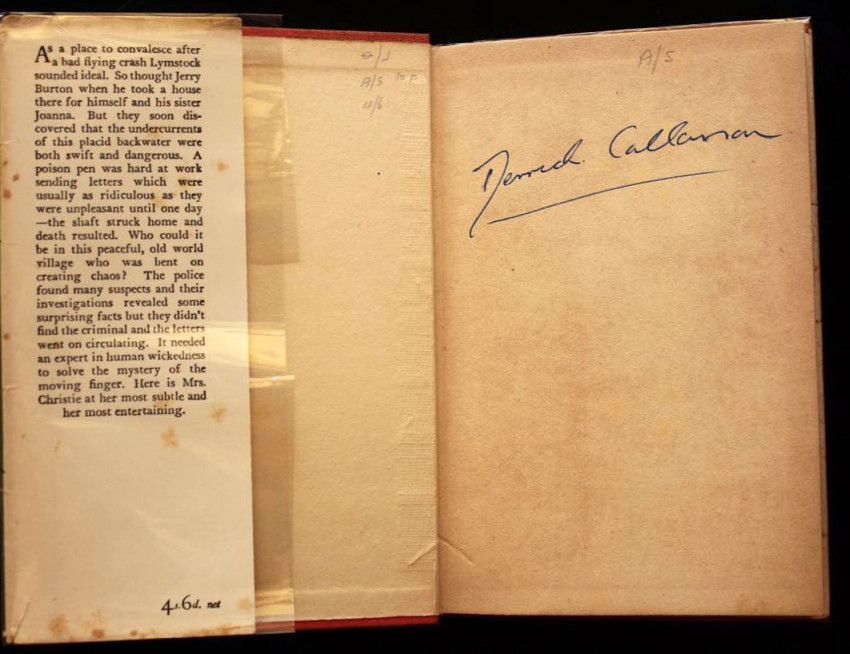 As a place to convalesce after
a bad flying crash Lymstock
sounded ideal. So thought Jerry
Burton when he took a house
there for himself and his sister
Joanna. But they soon dis-
covered that the undercurrents
of this placid backwater were
both swift and dangerous. A
poison pen was hard at work
sending letters which were
usually as ridiculous as they
were unpleasant until one day
—the shaft struck home and
death resulted. Who could it
be in this peaceful, old world
village who was bent on
creating chaos? The police
found many suspects and their
investigations revealed some
surprising facts but they didn't
find the criminal and the letters
went on circulating. It needed
an expert in human wickedness
to solve the mystery of the
moving finger. Here is Mrs.
Christie at her most subtle and
her most entertaining.
4s.6d. net
A/S
A/S